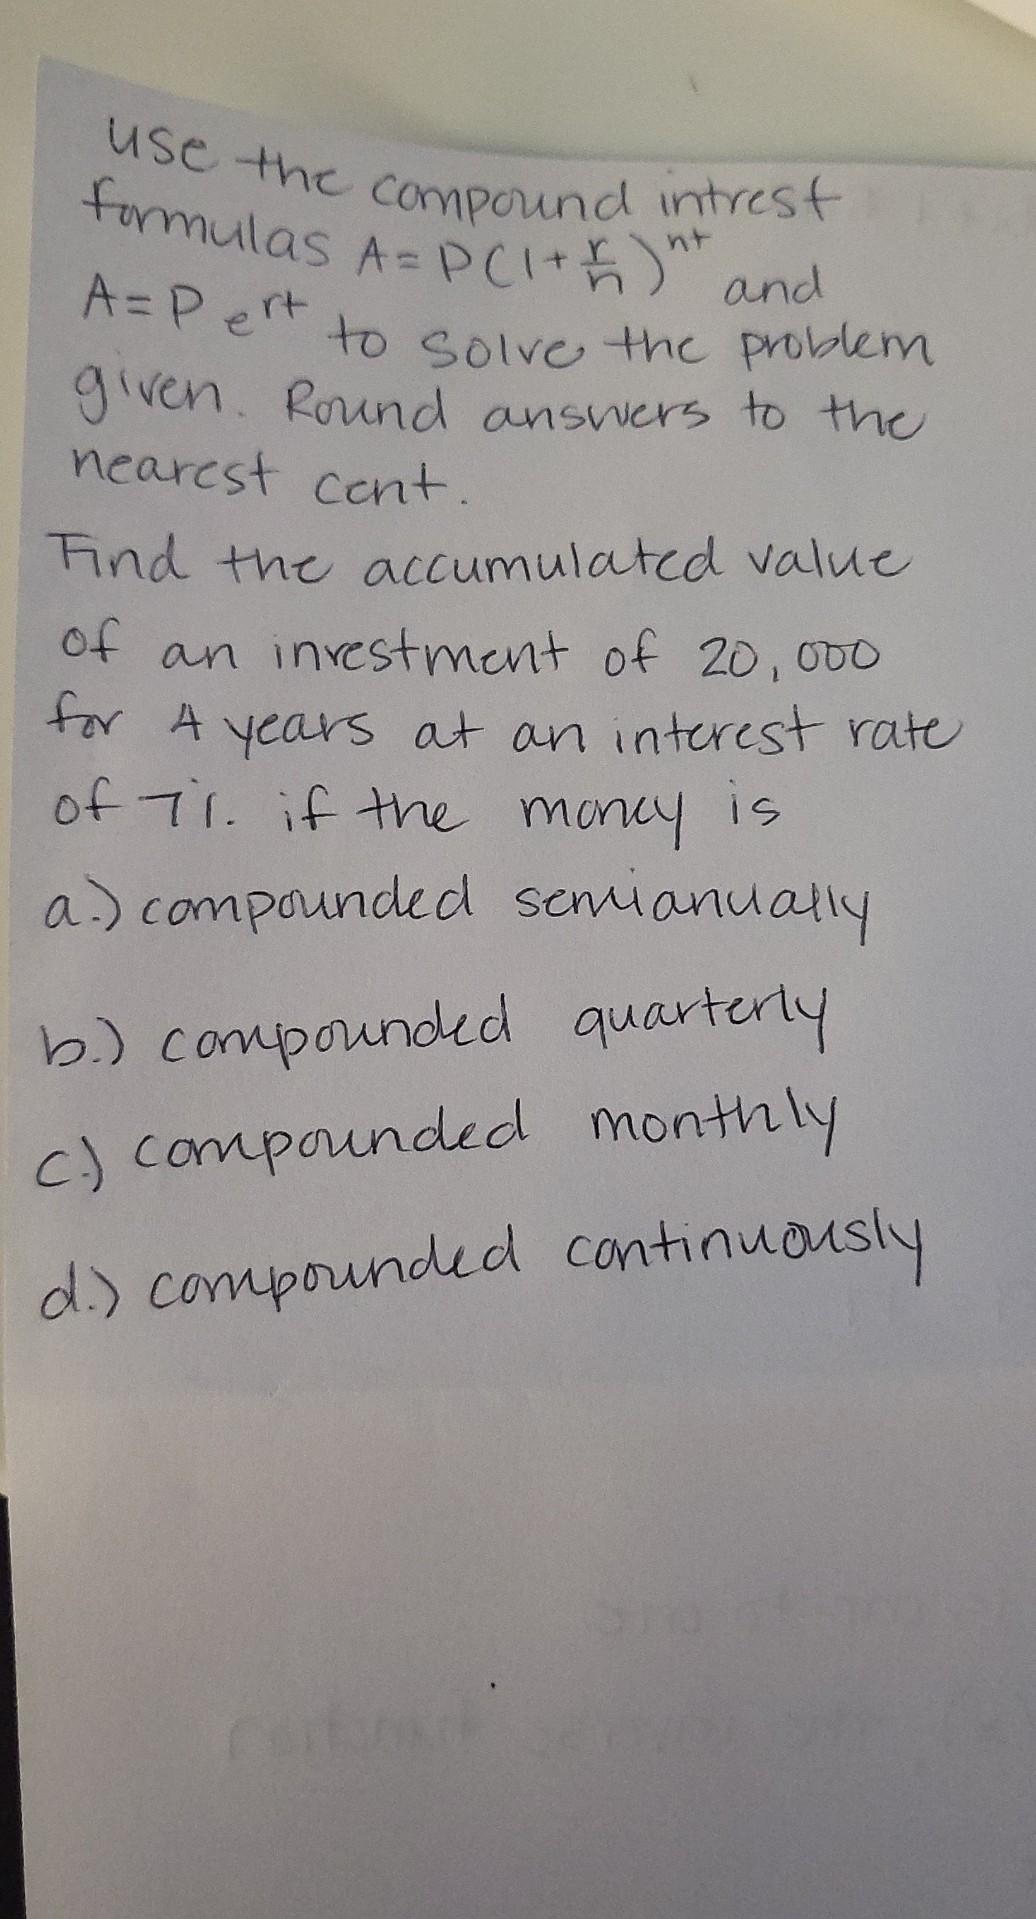 use the compound intrest
formulas A = P(1 + r/n)^nt and
A = Pe^rt to solve the problem
given. Round answers to the
nearest cent.
Find the accumulated value
of an investment of 20,000
for 4 years at an interest rate
of 7%. if the money is
a.) compounded semianually
b.) compounded quarterly
c.) compounded monthly
d.) compounded continuously